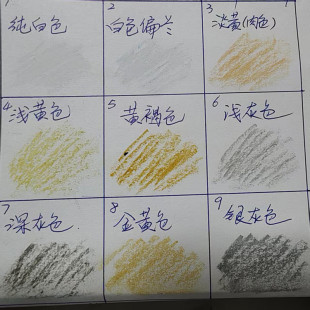 1
纯白色
2
白色偏兰
3
淡黄(肉色)
4
浅黄色
5
黄褐色
6
浅灰色
7
深灰色.
8
金黄色
9
银灰色